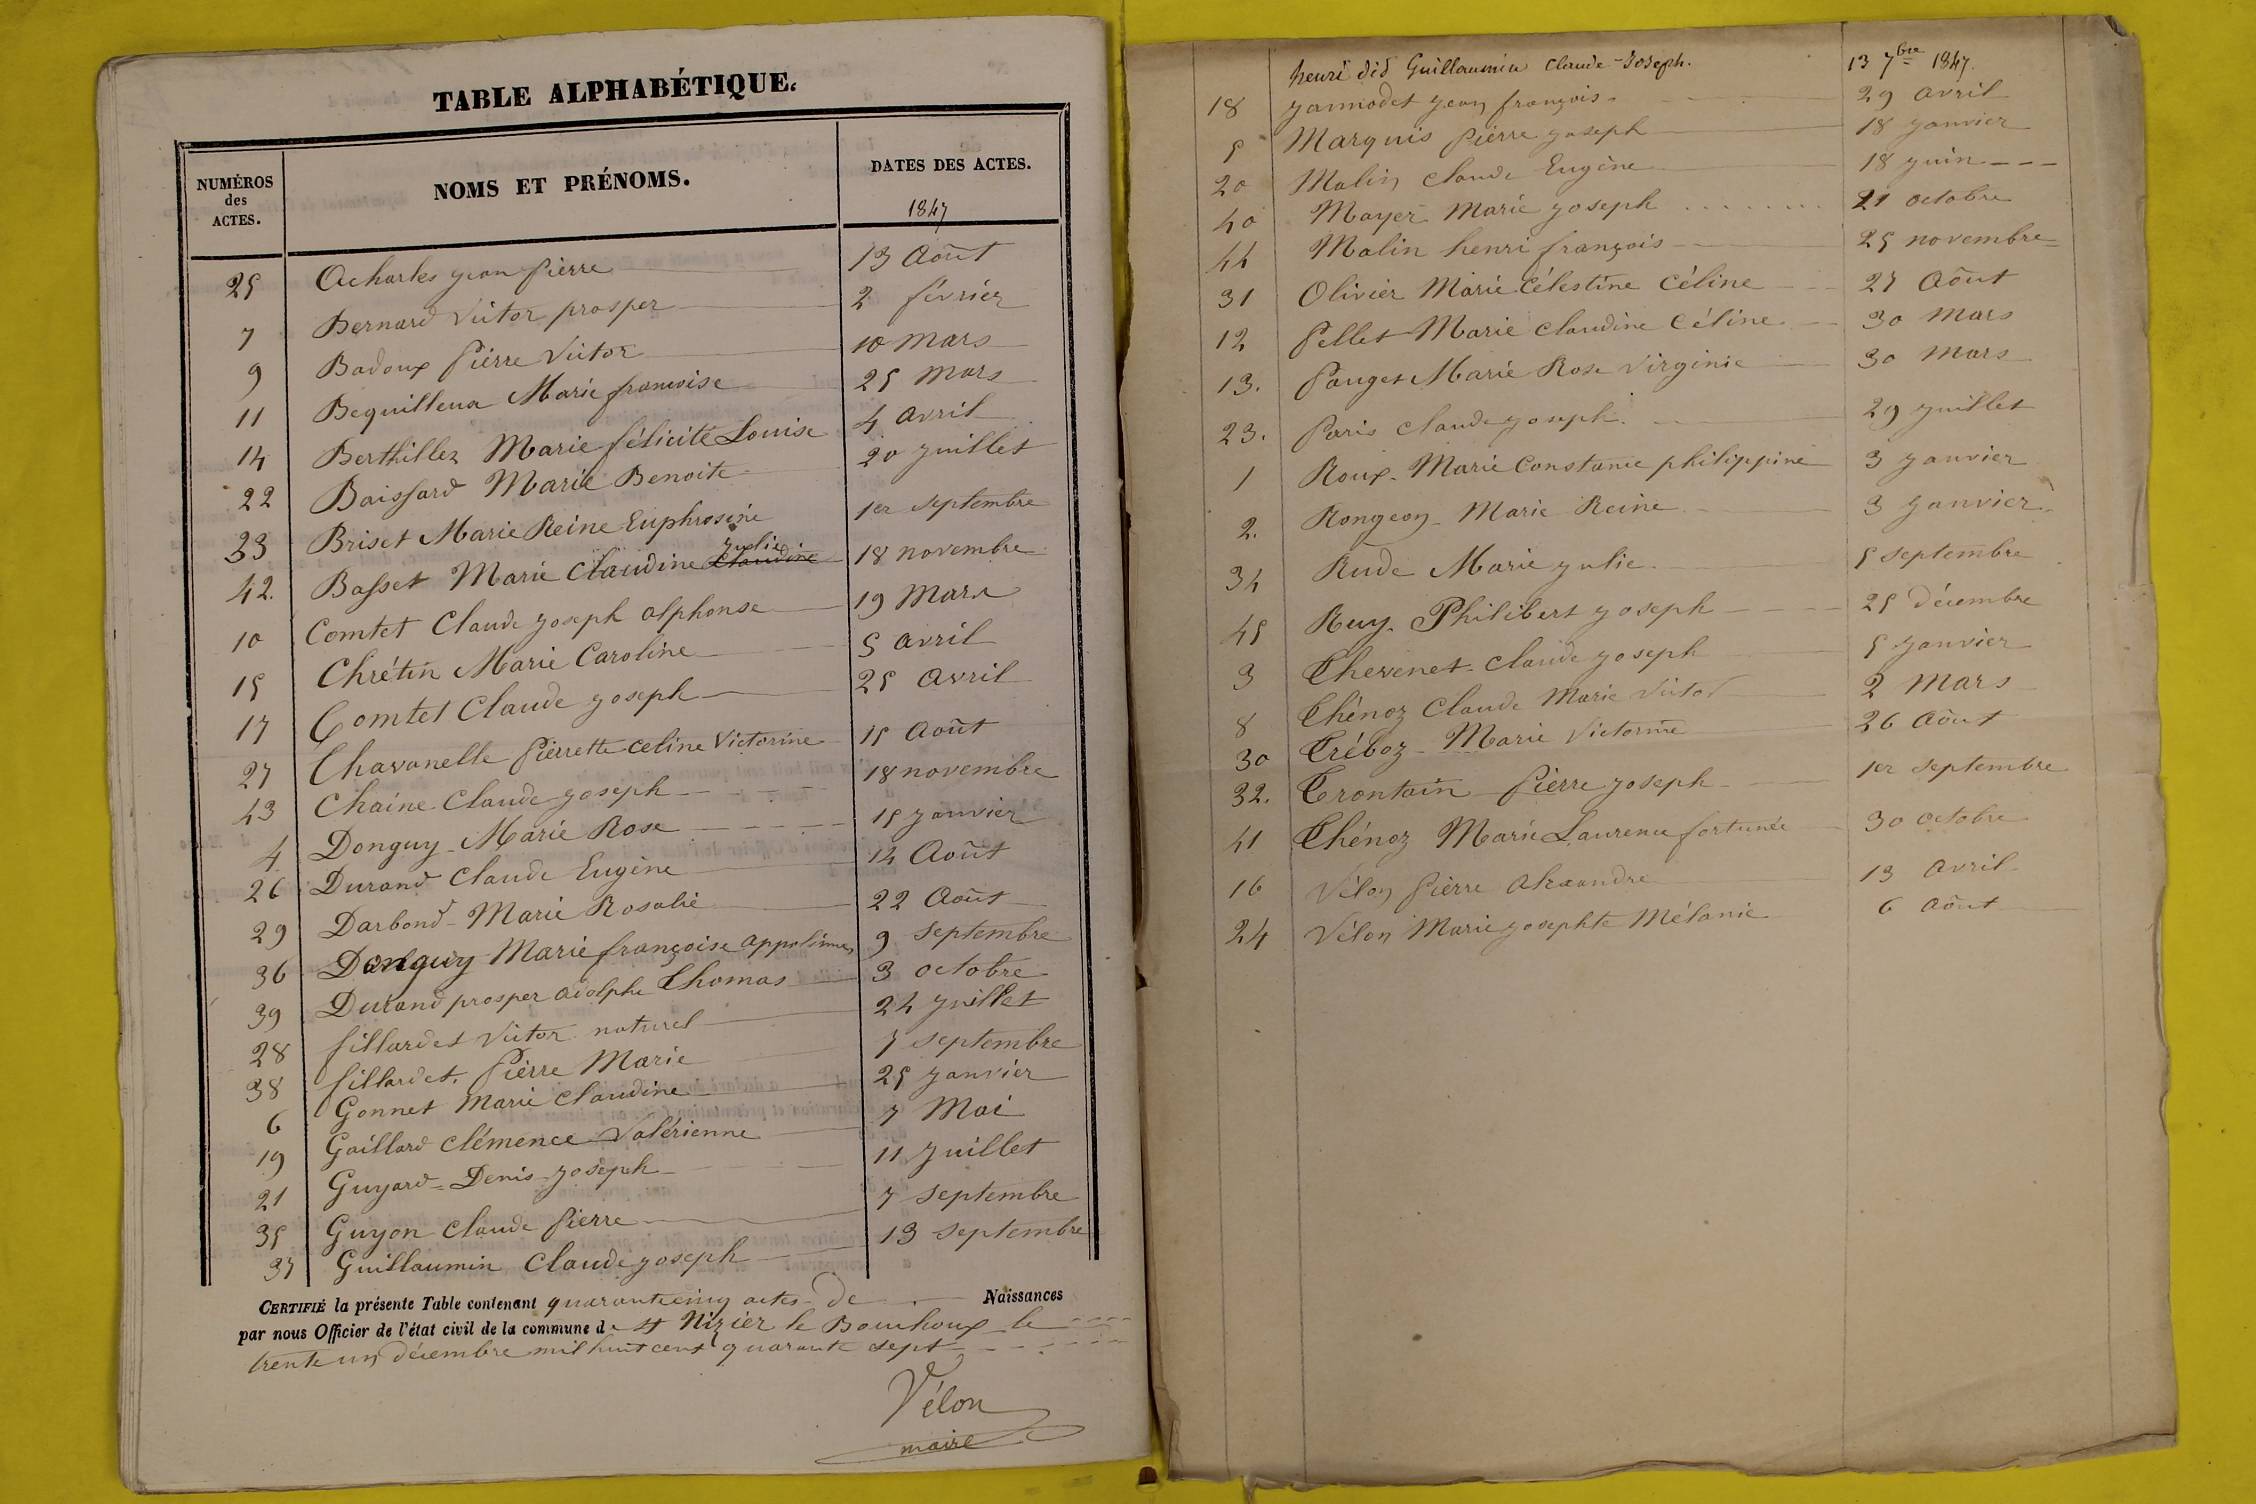 TABLE ALPHABÉTIQUE.
NUMÉROS des ACTES. NOMS ET PRÉNOMS. DATES DES ACTES.
1847
25 Acharles jean pierre 13 Août
7 Bernard Victor prosper 2 février
9 Badoux Pierre Victor 10 mars
11 Bequilleux Marie francoise 25 mars
14 Berthillez Marie félicité Louise 4 avril
22 Boissard Marie Benoite 20 juillet
33 Briset Marie Reine Euphrosine 1er septembre
42. Basset Marie Claudine Claudine julie 18 novembre
10 Comtet Claude joseph alphonse 19 Mars
15 Chrétin Marie Caroline 5 avril
17 Comtet Claude joseph 25 avril
27 Chavanelle Pierrette celine Victorine 15 Août
43 Chaine Claude joseph 18 novembre
4 Donguy Marie Rose 15 janvier
26 Durand Claude Eugène 14 Août
29 Darbond Marie Rosalie 22 Août
36 Donguy Marie françoise appolinne 9 septembre
39 Durand prosper adolphe Thomas 3 octobre
28 fillardet Victor naturel 24 juillet
38 fillardet. Pierre Marie 7 septembre
6 Gonnet Marie claudine 25 janvier
19 Gaillard Clémence Valérienne 7 Mai
21 Guyard Denis joseph 11 juillet
35 Guyon Claude Pierre 7 septembre
37 Guillaumin Claude joseph 13 septembre
CERTIFIÉ la présente Table contenant quarante cinq actes de Naissances
par nous Officier de l'état civil de la commune d e st Nizier le Bouchoux le
trente un décembre mil huit cent quarante sept
Vélon
maire
henri did Guillaumin Claude-Joseph. 13 7bre 1847.
18 jannodet jean françois 29 avril
5 Marquis Pierre joseph 18 janvier
20 Malin claude Eugène 18 juin
40 Mayer Marie joseph 21 octobre
44 Malin henri françois 25 novembre
31 Olivier Marie Célestine Céline 27 Août
12 Pellet Marie claudine Céline 30 Mars
13. Pouget Marie Rose Virginie 30 Mars
23. Paris claude joseph. 29 juillet
1 Roux Marie Constance philippine 3 janvier
2. Rongeon Marie Reine 3 janvier
34 Rude Marie julie 5 septembre
45 Ruy Philibert joseph 25 décembre
3 Thevenet claude joseph 5 janvier
8 Thénoz Claude Marie Victor 2 Mars
30 Tréboz Marie Victorine 26 Août
32. Trontain Pierre joseph 1er septembre
41 Thénoz Marie Laurence fortunée 30 octobre
16 Vélon Pierre Alexandre 13 avril
24 Vélon Marie josephte Mélanie 6 Août